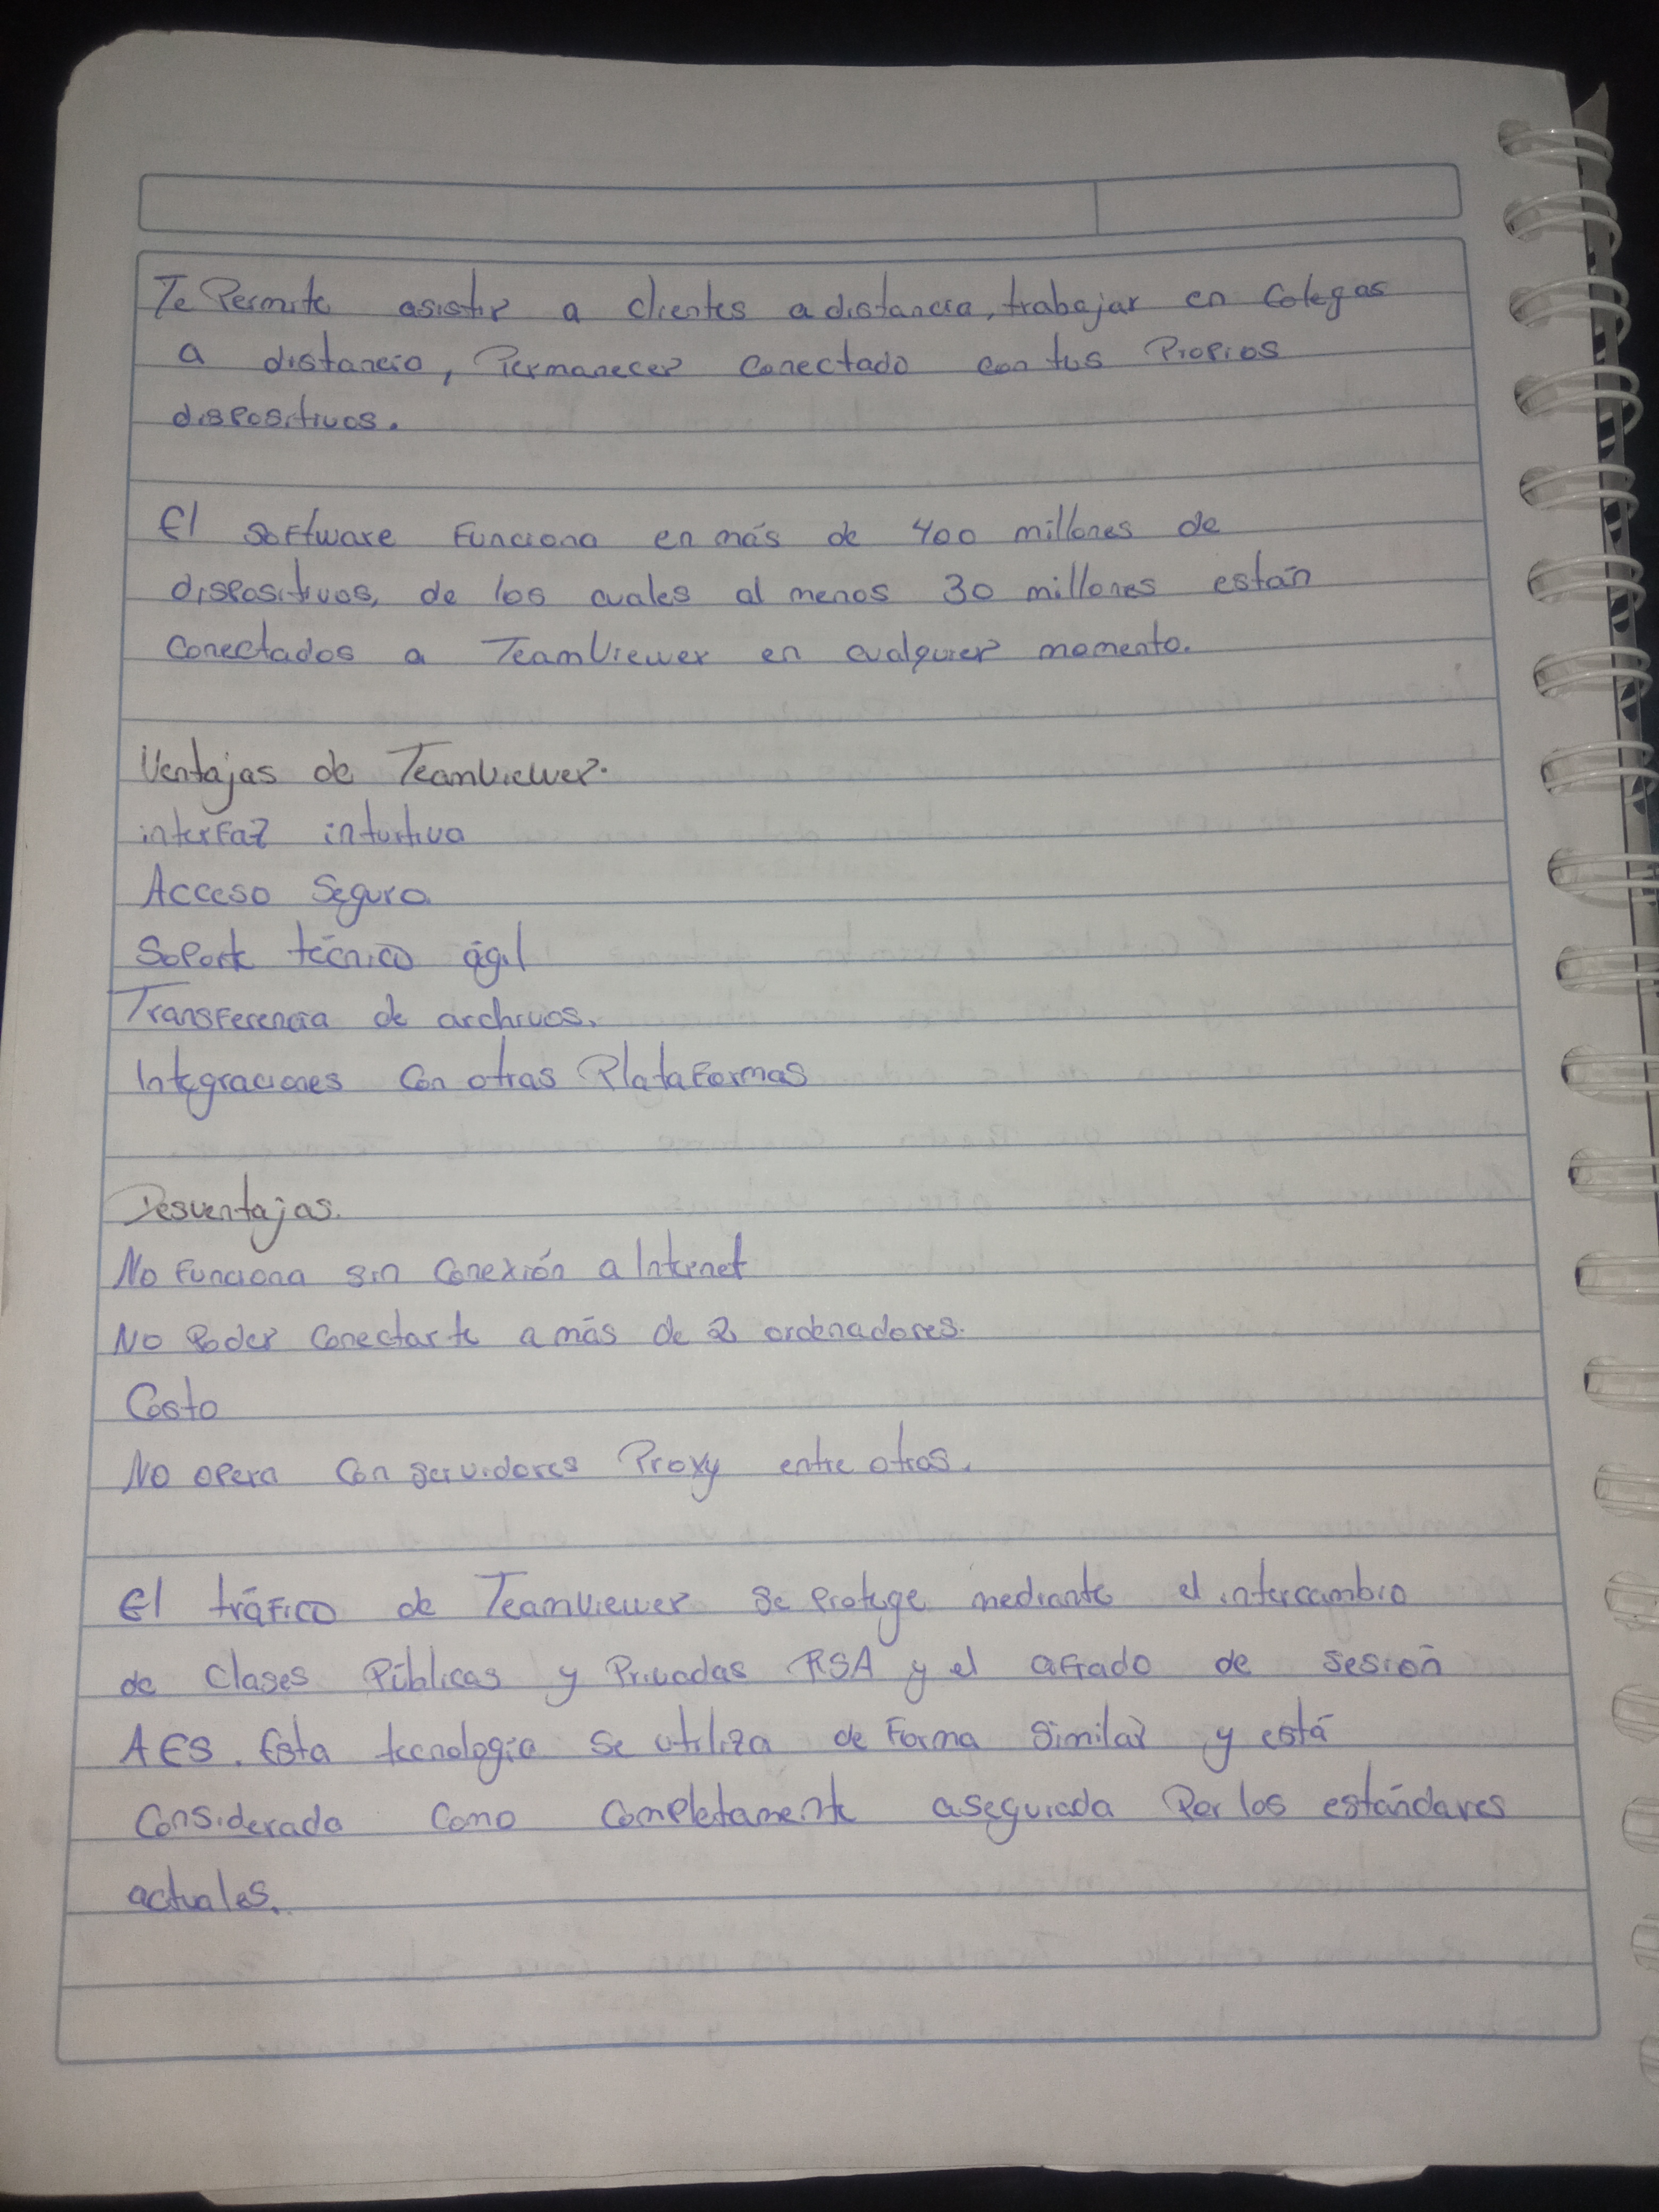 Te Permite asistir a clientes a distancia, trabajar en Colegas
a distancia, Permanecer Conectado con tus Propios
dispositivos.
El software Funciona en más de 400 millones de
dispositivos, de los cuales al menos 30 millones están
Conectados a TeamViewer en cualquier momento.
Ventajas de TeamViewer.
interfaz intuitiva
Acceso Seguro.
Soporte técnico ágil
Transferencia de archivos.
Integraciones Con otras Plataformas
Desventajas.
No Funciona sin Conexión a Internet
No Poder Conectarte a más de 2 ordenadores.
Costo
No opera Con servidores Proxy entre otros.
El tráfico de TeamViewer se Protege mediante el intercambio
de Clases Públicas y Privadas RSA y el afrado de sesión
AES. Esta tecnología se utiliza de Forma Similar y está
Considerada Como Completamente asegurada Por los estándares
actuales.